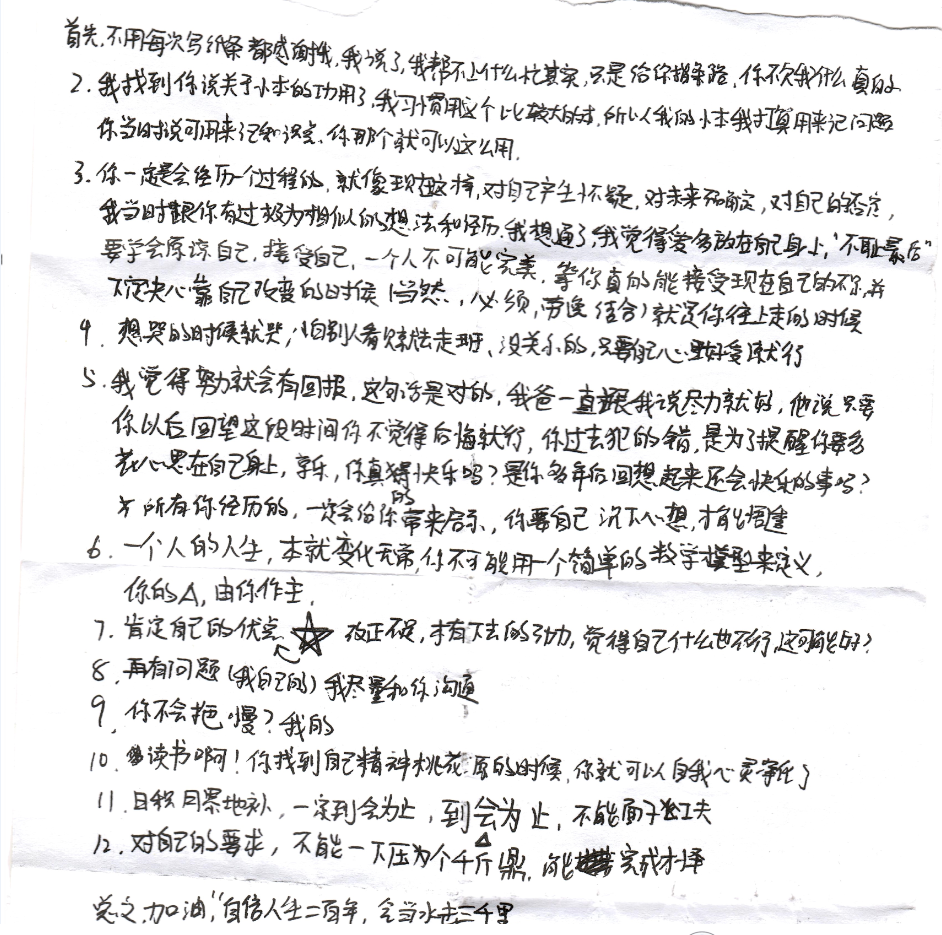 首先,不用每次写纸条都感谢我,我说了,我帮不上什么忙其实,只是给你指条路,你不欠我什么真的
2.我找到你说关于小本的功用了,我习惯用这个比较大的本,所以我的小本我打算用来记问题
你当时说可用来记知识点,你那个就可以这么用.
3.你一定是会经历一个过程的,就像现在这样,对自己产生怀疑,对未来不确定,对自己的否定,
我当时跟你有过极为相似的想法和经历.我想通了,我觉得要多放在自己身上,"不耻最后"
要学会原谅自己,接受自己,一个人不可能完美,等你真的能接受现在自己的不好,并
下定决心靠自己改变的时候(当然,必须,劳逸结合)就是你往上走的时候
4.想哭的时候就哭,怕别人看见就去走班、没关系的,只要自己心里好受就行
5.我觉得努力就会有回报,这句话是对的,我爸一直跟我说尽力就好,他说只要
你以后回望这段时间你不觉得后悔就行,你过去犯的错,是为了提醒你要多
花心思在自己身上,享乐,你真的快乐吗?是你多年后回想起来还会快乐的事吗?
所有你经历的,一定会给你带来启示,你要自己沉下心想,才能
6.一个人的人生,本就变化无常,你不可能用一个简单的数学模型来定义,
你的△,由你作主.
7.肯定自己的优点☆ 改正不足,才有下去的动力,觉得自己什么也不行,这可能吗?
8.再有问题(我自己的)我尽量和你沟通
9.你不会拖慢?我的
10.读书啊!你找到自己精神桃花源的时候,你就可以自我心灵寄托了
11.日积月累地补,一定到会为止,到会为止,不能面子工夫
12.对自己的要求,不能一下压为个千斤鼎,能完成才择
总之,加油,"自信人生二百年,会当水击三千里